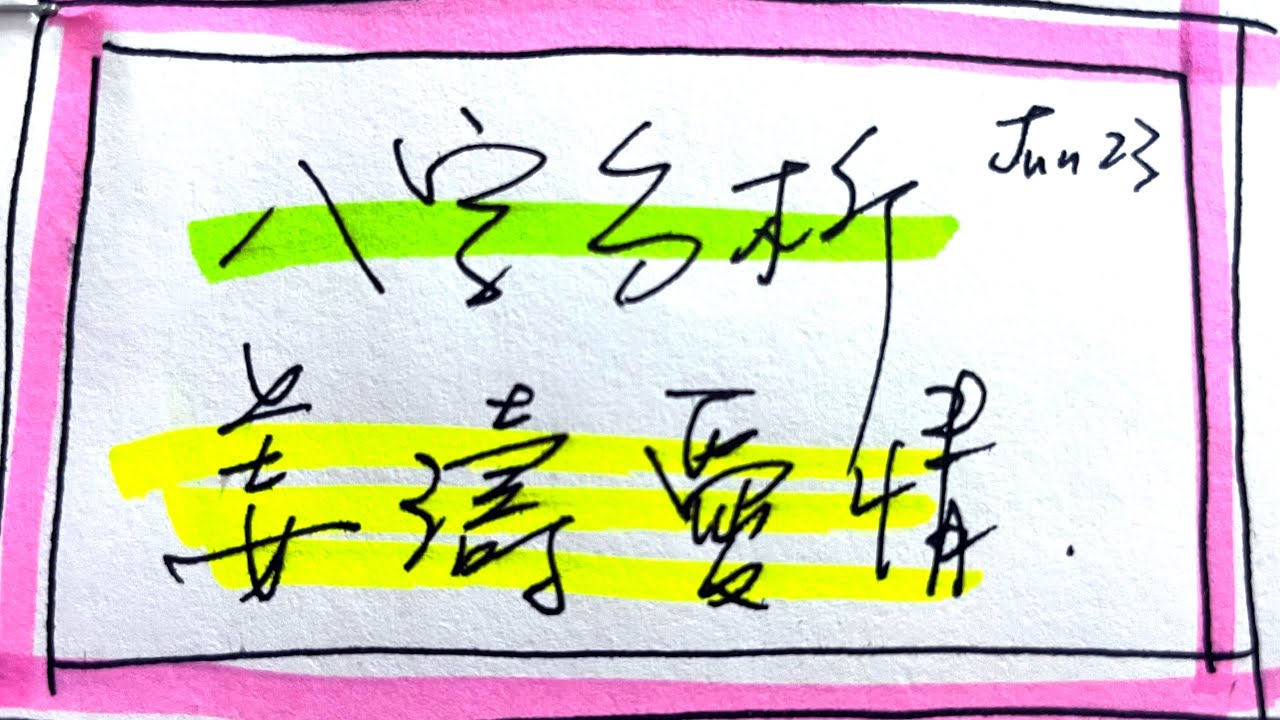 Jun 23
八字分析
姜濤愛情.